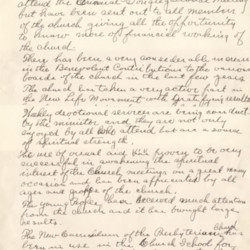 attend the annual Congregational Meeting
but have been sent out to all members
of the church giving all the opportunity
to know more of financial working of
the church.
There has been a very considerable increase
in the Benevolent Contributions to the various
boards of the church in the last few years
The church has taken a very active part in
the New Life Movement with gratifying results
Weekly devotional services are being conducted
by the minister and they are not only
enjoyed by all who attend but are a source
of spiritual strength.
The use of has proven to be very
successful in awakening the spiritual
interest of the Church, meetings on a great many
occasions and has been appreciated by all
ages and of the church.
The young People have received much attention
from the church and it has brought large
results.
The New Curriculum of the Presbyterian Church
has been in use in the Church School for